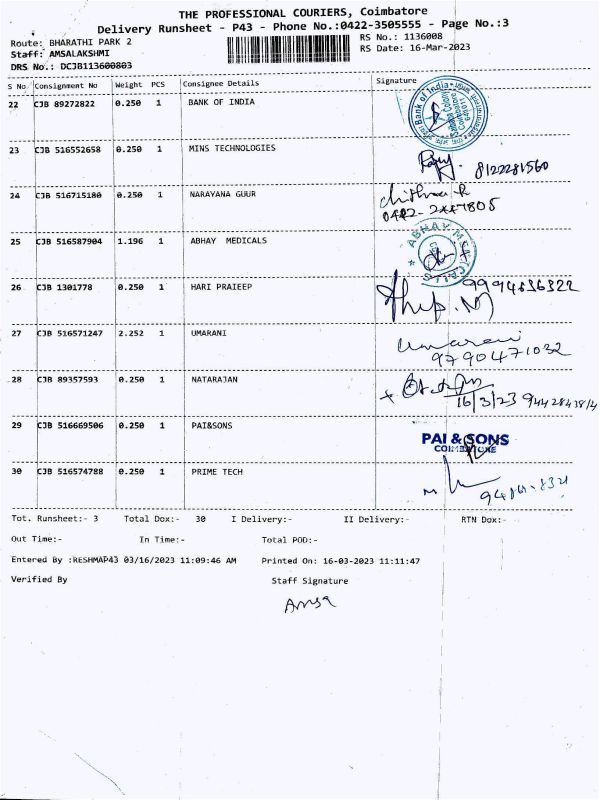 THE PROFESSIONAL COURIERS, Coimbatore
Delivery Runsheet - P43 - Phone No.:0422-3505555 - Page No.:3
Route: BHARATHI PARK 2
RS No.: 1136008
Staff: AMSALAKSHMI
RS Date: 16-Mar-2023
DRS No.: DCJB113600803
S No Consignment No Weight PCS Consignee Details Signature
22 CJB 89272822 0.250 1 BANK OF INDIA
Bank of India
23 CJB 516552658 0.250 1 MINS TECHNOLOGIES
8122281560
24 CJB 516715180 0.250 1 NARAYANA GUUR
25 CJB 516587904 1.196 1 ABHAY MEDICALS
ABHAY MEDICALS
26 CJB 1301778 0.250 1 HARI PRAIEEP
9994836322
27 CJB 516571247 2.252 1 UMARANI
Umarani
9790471032
28 CJB 89357593 0.250 1 NATARAJAN
16/3/23
29 CJB 516669506 0.250 1 PAI&SONS
PAI & SONS
COIMBATORE
30 CJB 516574788 0.250 1 PRIME TECH
Tot. Runsheet:- 3 Total Dox:- 30 I Delivery:- II Delivery:- RTN Dox:-
Out Time:- In Time:- Total POD:-
Entered By :RESHMAP43 03/16/2023 11:09:46 AM Printed On: 16-03-2023 11:11:47
Verified By Staff Signature
Amsa